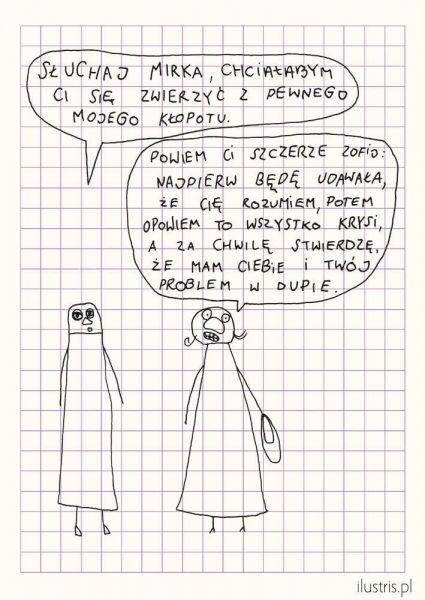 SŁUCHAJ MIRKA, CHCIAŁABYM
CI SIĘ ZWIERZYĆ Z PEWNEGO
MOJEGO KŁOPOTU.
POWIEM CI SZCZERZE ZOFIO:
NAJPIERW BĘDĘ UDAWAŁA,
ŻE CIĘ ROZUMIEM, POTEM
OPOWIEM TO WSZYSTKO KRYSI,
A ZA CHWILĘ STWIERDZĘ,
ŻE MAM CIEBIE I TWÓJ
PROBLEM W DUPIE.
ilustris.pl